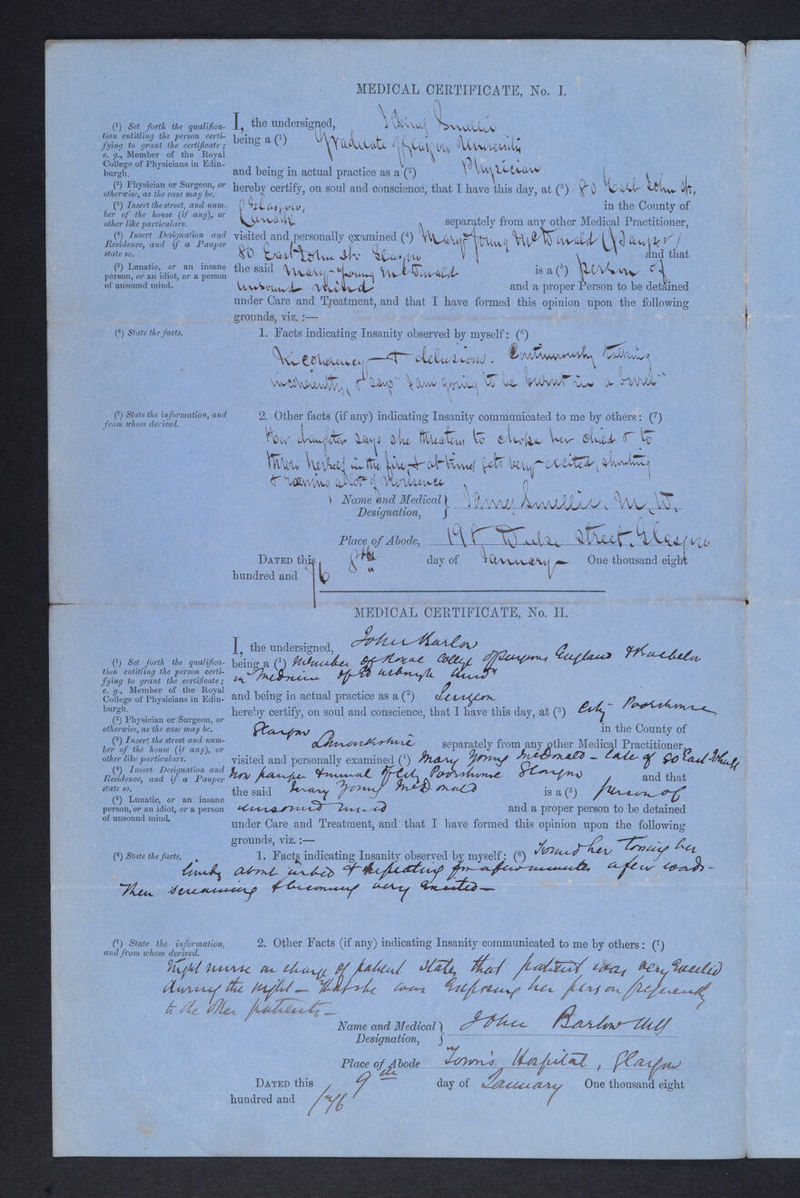 MEDICAL CERTIFICATE, No. I.
(¹) Set forth the qualifica-
tion entitling the person certi-
fying to grant the certificate;
e. g., Member of the Royal
College of Physicians in Edin-
burgh.
(²) Physician or Surgeon, or
otherwise, as the case may be.
(³) Insert the street, and num-
ber of the house (if any), or
other like particulars.
(⁴) Insert Designation and
Residence, and if a Pauper
state so.
(⁵) Lunatic, or an insane
person, or an idiot, or a person
of unsound mind.
I, the undersigned, James Smellie
being a (¹) Graduate of Glasgow University
and being in actual practice as a (²) Physician
hereby certify, on soul and conscience, that I have this day, at (³) 80 East John St,
Glasgow, in the County of
Lanark separately from any other Medical Practitioner,
visited and personally examined (⁴) Mary Young McDonald (Pauper)
80 East John St Glasgow and that
the said Mary Young McDonald is a (⁵) person of
unsound mind and a proper Person to be detained
under Care and Treatment, and that I have formed this opinion upon the following
grounds, viz. :—
(⁶) State the facts.
1. Facts indicating Insanity observed by myself: (⁶)
Incoherency & delusions. Continuously talking
incoherently, & says "I am going to be burnt in a barrel"
(⁷) State the information, and
from whom derived.
2. Other facts (if any) indicating Insanity communicated to me by others: (⁷)
Her daughter says she threatens to choke her child & to
throw herself in the fire, & at times gets very excited, shouting
& roaring a lot of
Name and Medical
Designation, James Smellie, M.D.
Place of Abode, 198 Duke Street, Glasgow
DATED this 8th day of January One thousand eight
hundred and 76
MEDICAL CERTIFICATE, No. II.
(¹) Set forth the qualifica-
tion entitling the person certi-
fying to grant the certificate;
e. g., Member of the Royal
College of Physicians in Edin-
burgh.
(²) Physician or Surgeon, or
otherwise, as the case may be.
(³) Insert the street and num-
ber of the house (if any), or
other like particulars.
(⁴) Insert Designation and
Residence, and if a Pauper
state so.
(⁵) Lunatic, or an insane
person, or an idiot, or a person
of unsound mind.
I, the undersigned, John Barlow
being a (¹) Member of Royal College of Surgeons England & Bachelor
in Medicine of Edinburgh
and being in actual practice as a (²) Surgeon
hereby certify, on soul and conscience, that I have this day, at (³) City Poorhouse
Glasgow in the County of
Lanarkshire separately from any other Medical Practitioner,
visited and personally examined (⁴) Mary Young McDonald - late of 80 East John St
Now pauper & inmate of City Poorhouse Glasgow and that
the said Mary Young McDonald is a (⁵) person of
unsound mind and a proper person to be detained
under Care and Treatment, and that I have formed this opinion upon the following
grounds, viz. :—
(⁶) State the facts.
1. Facts indicating Insanity observed by myself: (⁶) Found her tossing her
limbs about in bed & repeating for a few minutes a few words -
Then screaming & becoming very excited -
(⁷) State the information,
and from whom derived.
2. Other Facts (if any) indicating Insanity communicated to me by others: (⁷)
Night nurse in charge of patient states that patient was very excited
during the night - That she was exposing her person frequently
to the other patients -
Name and Medical
Designation, John Barlow
Place of Abode Town's Hospital, Glasgow
DATED this 9th day of January One thousand eight
hundred and /76